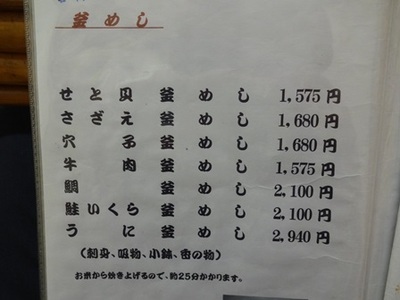 釜めし
せと貝釜めし 1,575円
さざえ釜めし 1,680円
穴子釜めし 1,680円
牛肉釜めし 1,575円
鯛釜めし 2,100円
鮭いくら釜めし 2,100円
うに釜めし 2,940円
(刺身、吸物、小鉢、香の物)
お米から炊き上げるので、約25分かかります。